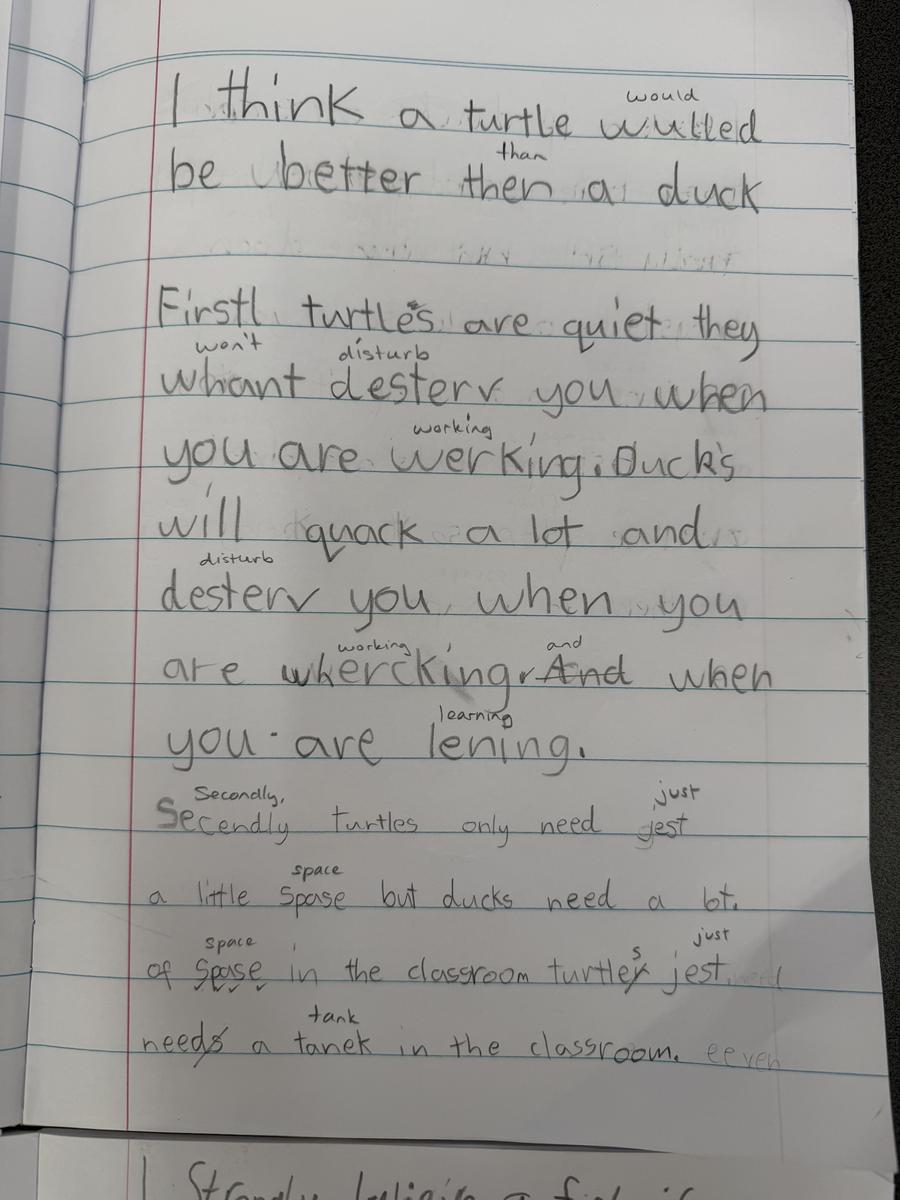 would
I think a turtle wulled
than
be better then a duck
Firstl turtle's are quiet they
won't disturb
whant desterv you when
working
you are werking. Duck's
will quack a lot and
disturb
desterv you when you
working and
are whercking. And when
learning
you are lening.
Secondly, just
Secendly turtles only need jest
space
a little spase but ducks need a lot.
space s just
of spase in the classroom turtley jest
tank
needs a tanek in the classroom. eeven
I Strongly